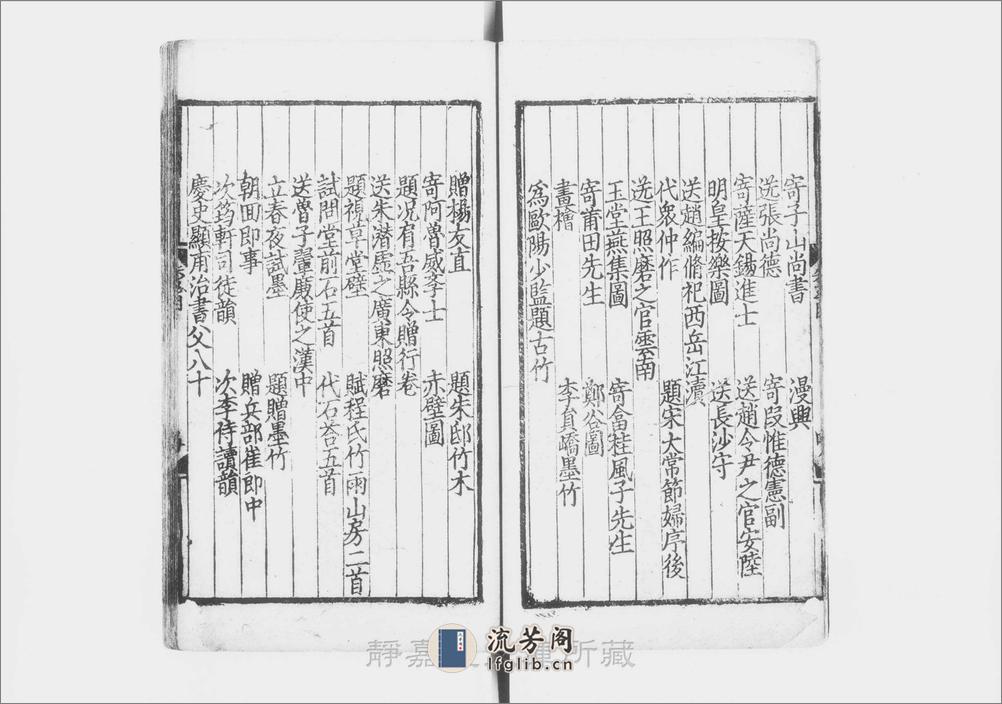 寄子山尚書　漫興
送張尚德　寄段惟德憲副
寄薩天錫進士　送趙令尹之官安陸
明皇按樂圖　送長沙守
送趙編脩祀西岳江瀆
代衆仲作　題宋太常節婦序後
送王照磨之官雲南
玉堂燕集圖　寄畲桂風子先生
寄莆田先生　鄭谷圖
畫檜　李員嶠墨竹
爲歐陽少監題古竹
贈楊友直　題朱邸竹木
寄阿魯威李士　赤壁圖
題况有吾縣令贈行卷
送朱潜虚之廣東照磨
題視草堂壁　賦程氏竹雨山房二首
試問堂前石五首　代石荅五首
送魯子翬廉使之漢中
立春夜試墨　題贈墨竹
朝回即事　贈兵部崔郎中
次筠軒司徒韻　次李侍讀韻
慶史顯甫治書父八十
靜嘉 所藏
流芳阁
lfglib.cn